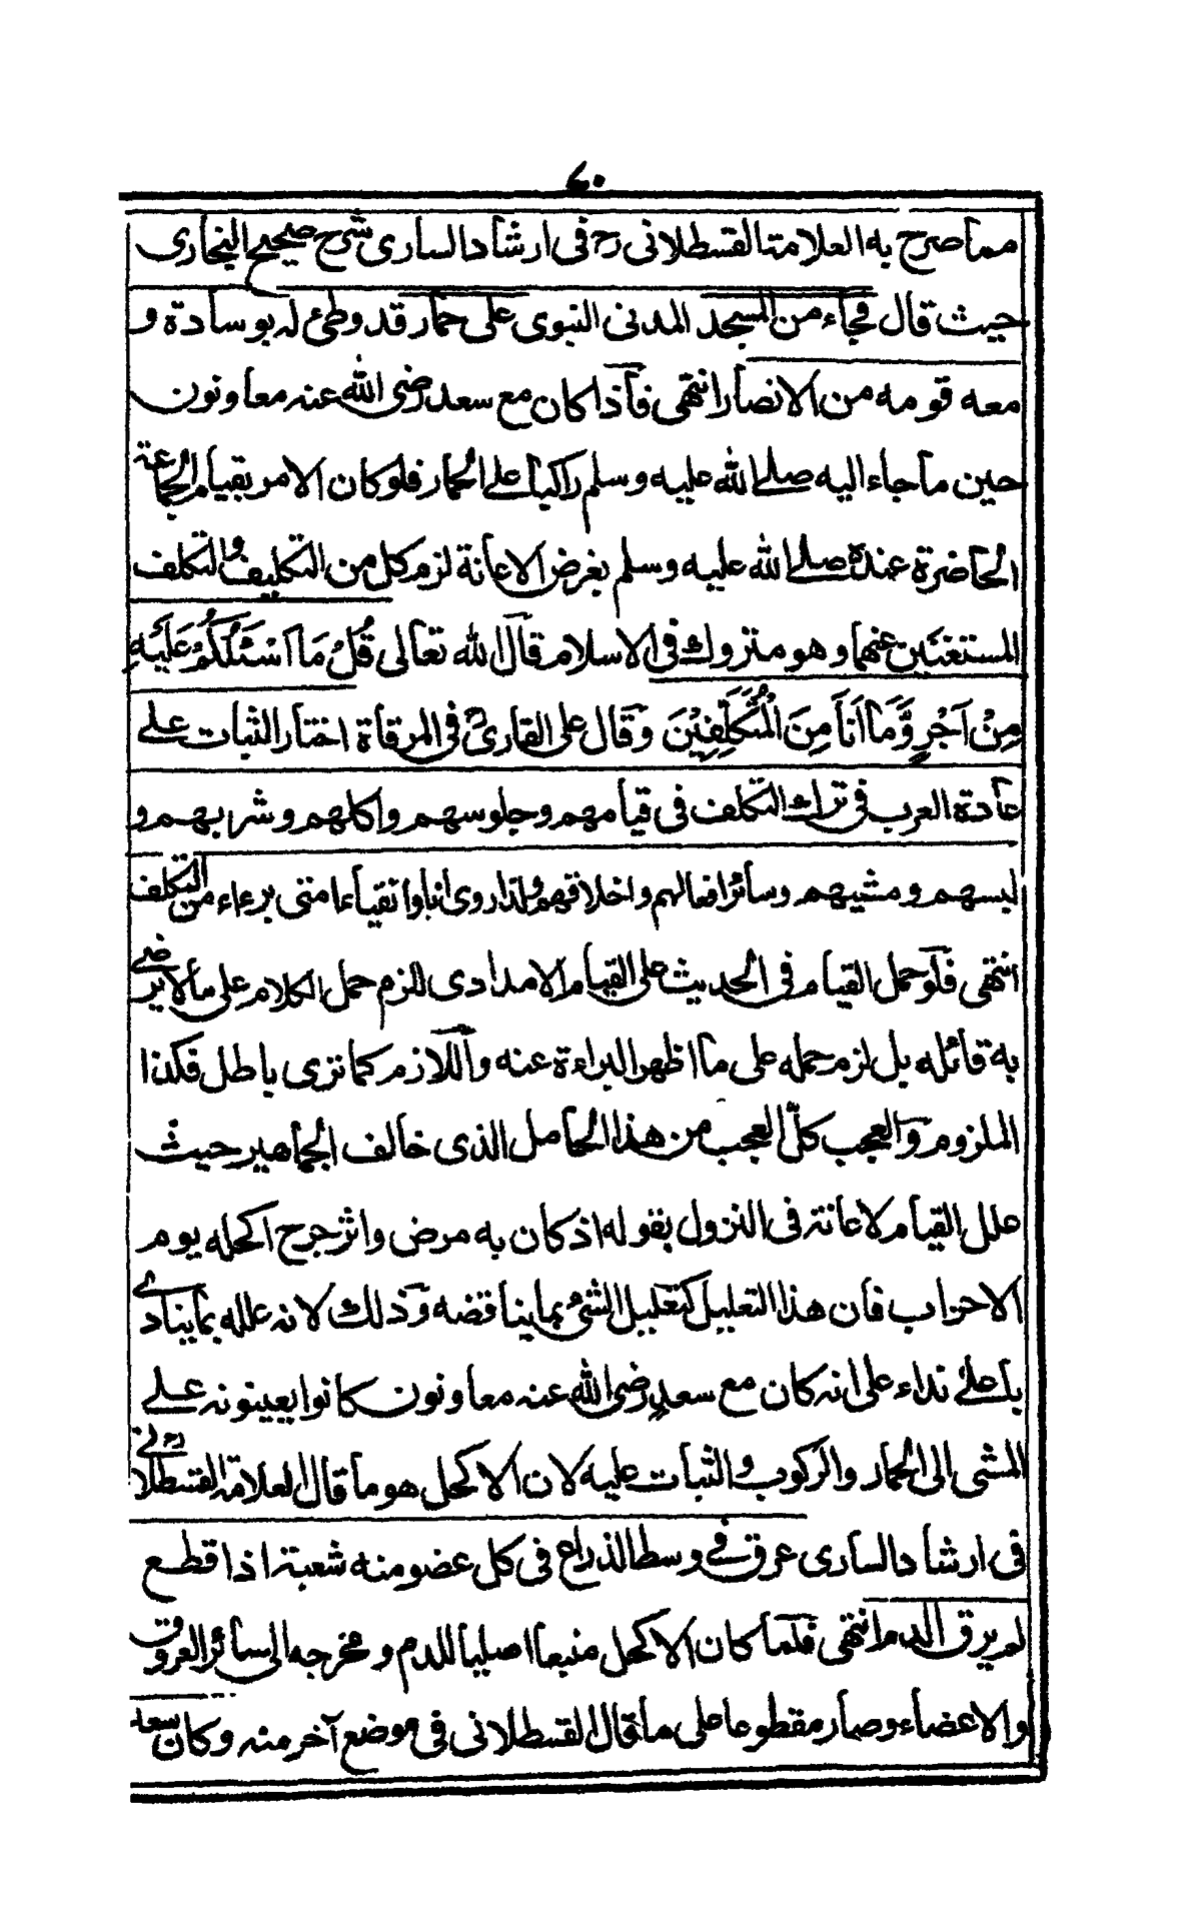 ٤٠
مما صرح به العلامة القسطلانی رح فی ارشاد الساری شرح صحیح البخاری
حیث قال فجاء من المسجد المدنی النبوی علی حمار قد وطئ له بوسادة و
معه قومه من الانصار انتهی فاذا کان مع سعد رضی الله عنه معاونون
حین ما جاء الیه صلے الله علیه وسلم راکبا علے الحمار فلو کان الامر بقیام الجماعة
الحاضرة عنده صلے الله علیه وسلم بغرض الاعانة لزم کل من التکلیف والتکلف
المستغنین عنهما وهو متروك فی الاسلام قال الله تعالی قُلْ مَا اَسْئَلُکُمْ عَلَیْهِ
مِنْ اَجْرٍ وَّمَا اَنَا مِنَ الْمُتَکَلِّفِیْنَ وقال علی القاری رح فی المرقاة اختار الثبات علے
عادة العرب فی ترك التکلف فی قیامهم وجلوسهم واکلهم وشربهم و
لبسهم ومشیهم وسائر افعالهم واخلاقهم ولذا روی انا واتقیاء امتی برءاء من التکلف
انتهی فلو حمل القیام فی الحدیث علی القیام الامدادی للزم حمل الکلام علی ما لا یرضے
به قائله بل لزم حمله علی ما اظهر البراءة عنه واللازم کما تری باطل فکذا
الملزوم والعجب کلّ العجب من هذا الحامل الذی خالف الجماهیر حیث
علل القیام لاعانة فی النزول بقوله اذ کان به مرض واثر جرح اکحله یوم
الاحزاب فان هذا التعلیل کتعلیل الشئ بما یناقضه وذلك لانه علله بما ینادے
باعلےٰ نداء علی انه کان مع سعد رضی الله عنه معاونون کانوا یعینونه علے
المشی الی الحمار والرکوب والثبات علیه لان الاکحل هو ما قال العلامة القسطلانی رح
فی ارشاد الساری عرق فے وسط الذراع فی کل عضو منه شعبة اذا قطع
لم یرق الدم انتهی فلما کان الاکحل منبعا اصلیا للدم ومخرجه الی سائر العروق
والاعضاء وصار مقطوعا علی ما قال القسطلانی فی موضع آخر منه وکان سعد